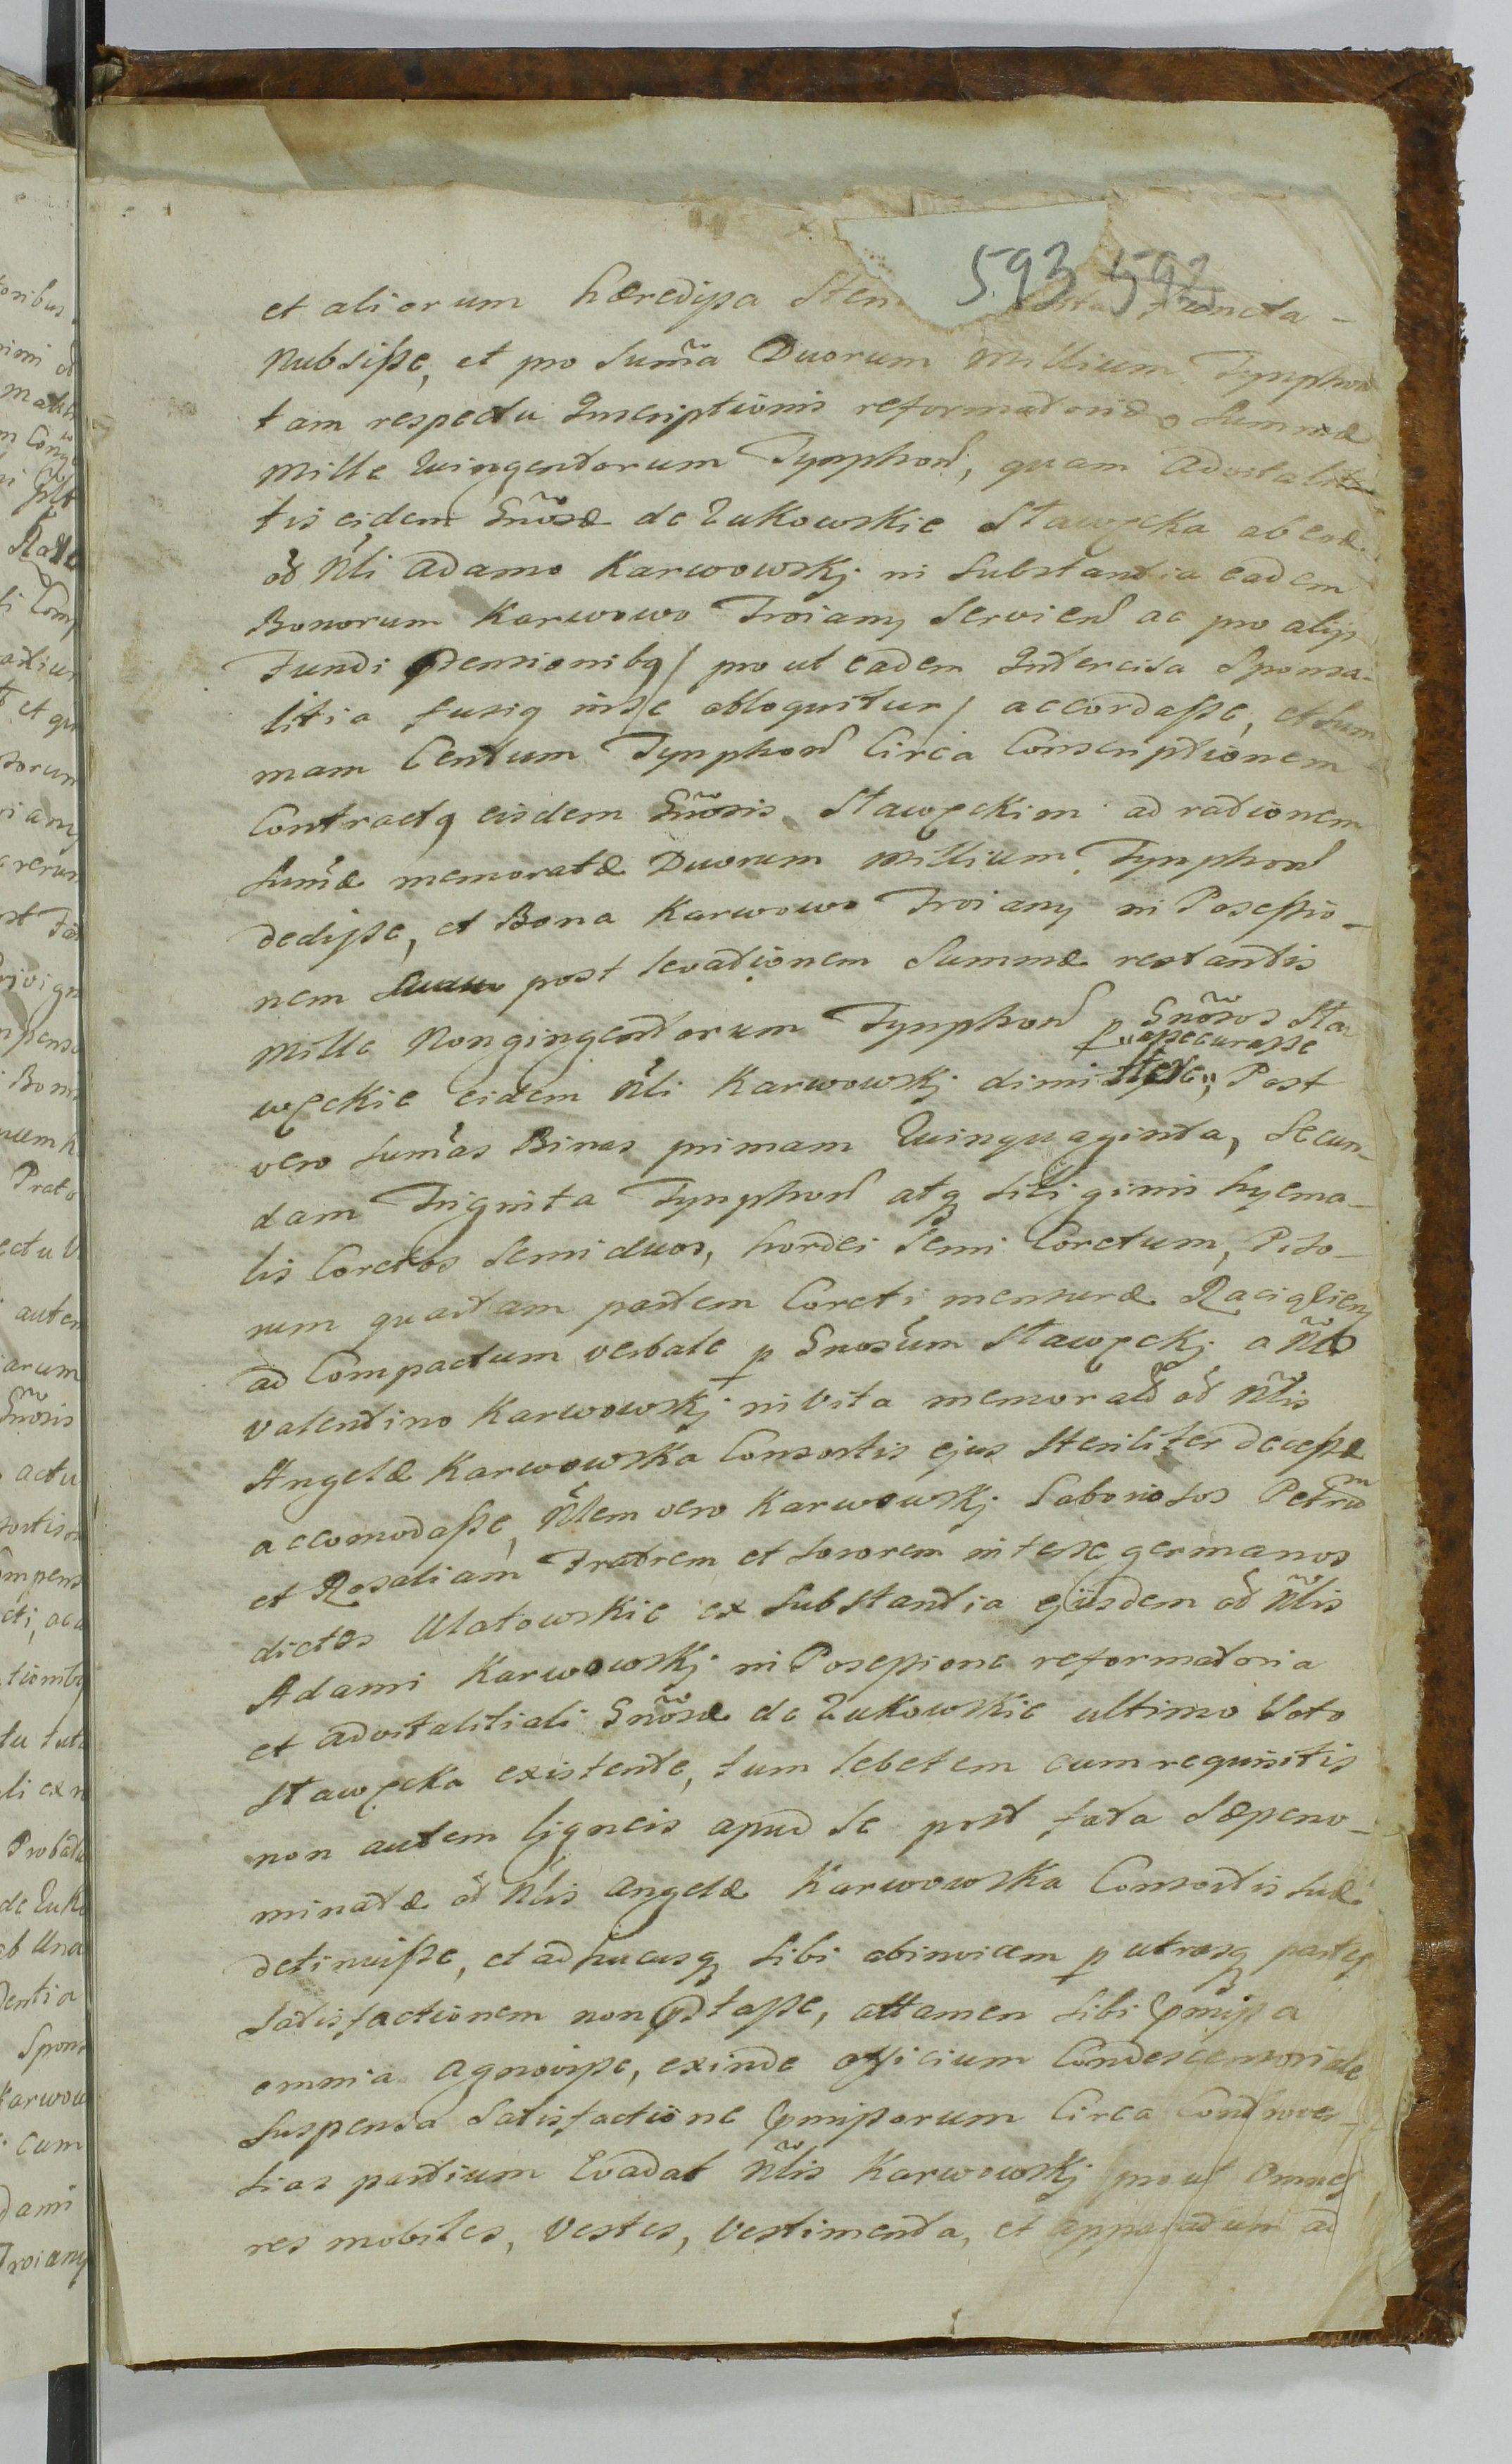 593 592
et aliorum hæredissa Sten functa –
Nubsisse, et pro Sum̃a Duorum Millium Tynphon
tam respectu Inscriptionis reformatoriæ Summæ
Mille Quingentorum Tynphon, quam Advitalita
tis ejdem Gnõsæ de Zukowskie Stawęcka ab eod
õd Nli Adamo Karwowskj in Substantia eadem
Bonorum Karwowo Troiany Servien ac pro alijs
Fundi Ptensionibq / pro ut eadem Intercisa Sponsa-
litia fusiq in se obloquitur / accordasse, et Sum
mam Centum Tynphon Circa Conscriptionem
Contractq eisdem Gnõsis Stawęckim ad rationem
Sum̃æ memoratæ Duorum Millium Tynphon
dedisse, et Bona Karwowo Troiany in Possessio-
nem post levationem Summæ restantis
Mille Nongingentorum Tynphon p Gnõsos Sta
assecurasse
węckie eidem Nli Karwowskj dimittere, Post
vero Sum̃as Binas primam Quinquaginta, Secun-
dam Triginta Tynphon atq Siliginis hyema-
lis Coretos Semiduos, hordei Semi Coretum, Piso-
rum quartam partem Coreti mensuræ Raciąзien
ad Compactum verbale p Gnosum Stawęckj a Nlõ
Valentino Karwowskj in Vita memorat õd Nlis
Angelæ Karwowska Consortis ejus Steriliter decessæ
accomodasse, Nlem vero Karwowskj Laboriosos Petrum
et Rosaliam Fratrem et Sororem inter se germanos
dictos Ulatowskie ex Substantia ejusdem õd Nlis
Adami Karwowskj in Possessione reformatoria
et advitalitiali Gnõsæ de Zukowskie ultimo Voto
Stawęcka existente, tum lebetem cum requisitis
non autem ligneis apud se post fata Sæpeno-
minatæ õd Nlis Angelæ Karwowska Consortis Suæ
detinuisse, et adhucusq Sibi abinvicem p utrasq partes
Satisfactionem non pstasse, attamen Sibi pmissa
omnia agnovisse, exinde officium Condescensoriale
Suspensa Satisfactione pmissorum Circa Controver-
sias partium Evadat Nlis Karwowskj prout Omnes
res mobiles, Vestes, Vestimenta, et apparatum ad